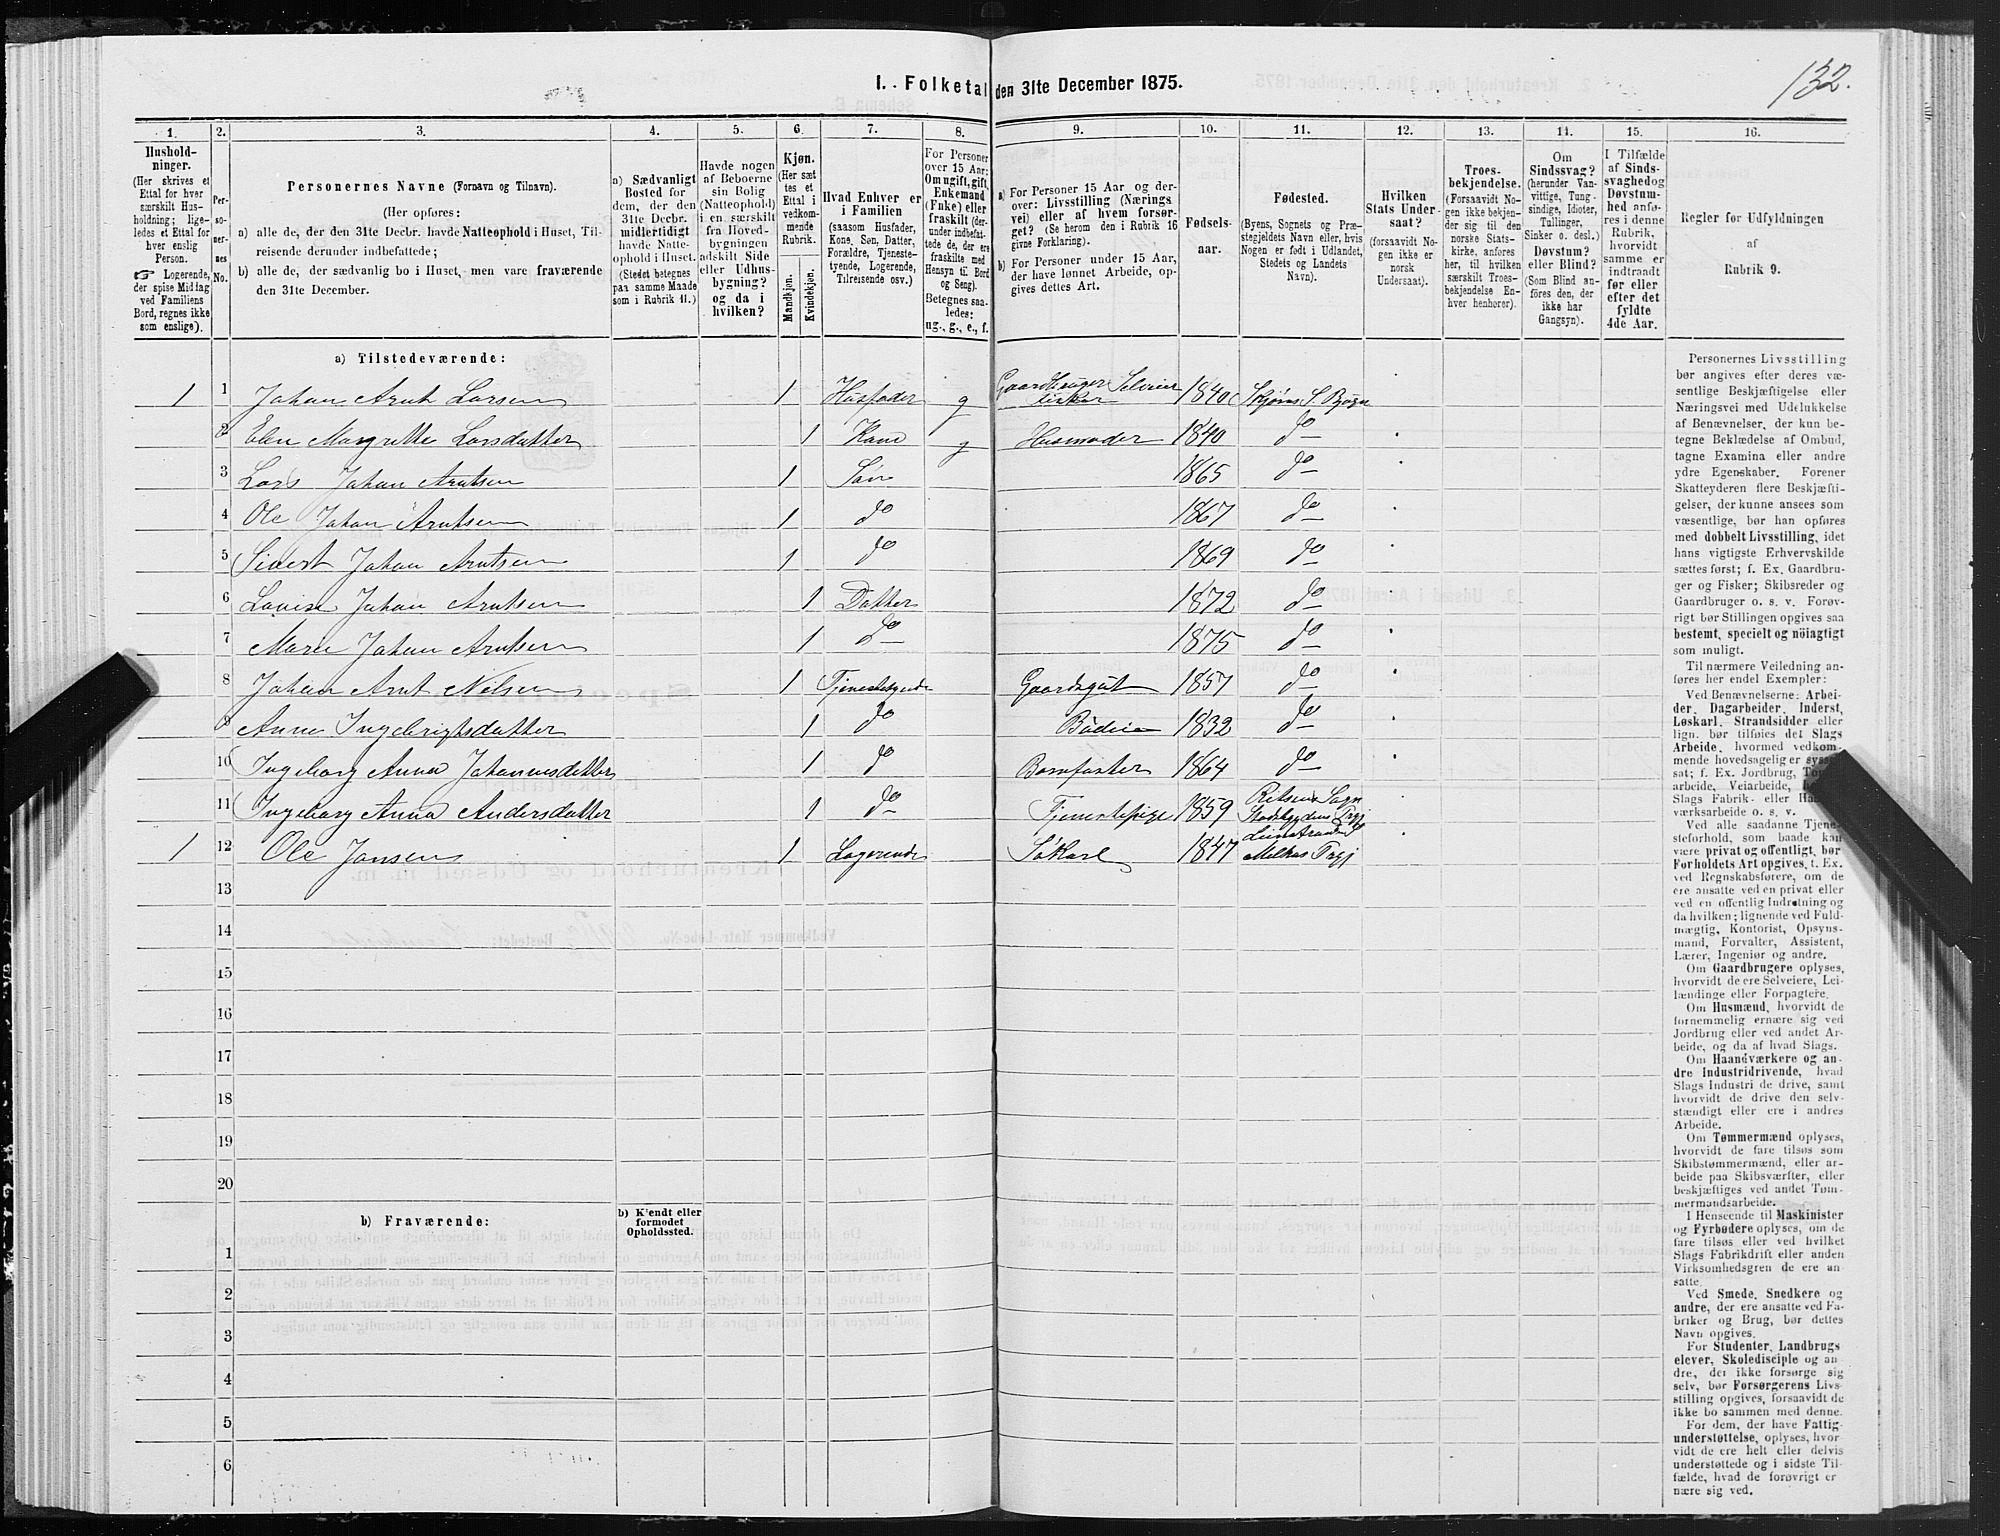 132.
I. Folketal den 31te December 1875.
1. 2. 3. 4. 5. 6. 7. 8. 9. 10. 11. 12. 13. 14. 15. 16.
Hushold-
ninger.
(Her skrives et
Ettal for hver
særskilt Hus-
holdning; lige-
ledes et Ettal for
hver enslig
Person.
☞ Logerende,
der spise Middag
ved Familiens
Bord, regnes ikke
som enslige).
Per-
so-
ner-
nes
No.
Personernes Navne (Fornavn og Tilnavn).
(Her opføres:
a) alle de, der den 31te Decbr. havde Natteophold i Huset, Til-
reisende derunder indbefattede;
b) alle de, der sædvanlig bo i Huset, men vare fraværende
den 31te December.
a) Sædvanligt
Bosted for
dem, der den
31te Decbr.
midlertidigt
havde Natte-
ophold i Huset.
(Stedet betegnes
paa samme Maade
som i Rubrik 11.)
Havde nogen
af Beboerne
sin Bolig
(Natteophold)
i en særskilt
fra Hoved-
bygningen
adskilt Side
eller Udhus-
bygning?
og da i
hvilken?
Kjøn.
(Her sæt
tes et
Ettal i
vedkom-
mende
Rubrik.
Mandkjøn.
Kvindekjøn.
Hvad Enhver er
i Familien
(saasom Husfader,
Kone, Søn, Datter,
Forældre, Tjeneste-
tyende, Logerende,
Tilreisende osv.)
For Personer
over 15 Aar:
Om ugift, gift,
Enkemand
(Enke) eller
fraskilt (der-
under indbefat-
tede de, der ere
fraskilte med
Hensyn til Bord
og Seng).
Betegnes saa-
ledes:
ug., g., e., f.
a) For Personer 15 Aar og der-
over: Livsstilling (Nærings
vei) eller af hvem forsør-
get? (Se herom den i Rubrik 16
givne Forklaring).
b) For Personer under 15 Aar,
der have lønnet Arbeide, op-
gives dettes Art.
Fødsels-
aar.
Fødested.
(Byens, Sognets og Præ-
stegjeldets Navn eller, hvis
Nogen er født i Udlandet,
Stedets og Landets
Navn).
Hvilken
Stats Under-
saat?
(forsaavidt No-
gen ikke er
norsk
Undersaat).
Troes-
bekjendelse.
(Forsaavidt No-
gen ikke bekjen-
der sig til den
norske Stats-
kirke, anføres
her, til hvilken
særskilt Troes-
bekjendelse En-
hver henhører).
Om
Sindssvag?
(herunder Van-
vittige, Tung-
sindige, Idioter,
Tullinger,
Sinker o. desl.)
Døvstum?
eller Blind?
(Som Blind an-
føres den, der
ikke har
Gangsyn).
I Tilfælde
af Sinds-
svaghed og
Døvstum-
hed anfø-
res i denne
Rubrik,
hvorvidt
samme er
indtraadt
før eller
efter det
fyldte
4de Aar.
Regler for Udfyldningen
af
Rubrik 9.
a) Tilstedeværende:
1 1 Johan Arnt Larsen 1 Husfader g Gaardbruger Selveier Fisker 1840 Skjørns S. Bjøgn
2 Elen Margrette Larsdatter 1 Kone g Husmoder 1840 do
3 Lars Johan Arntsen 1 Søn 1865 do
4 Ole Johan Arntsen 1 do 1867 do
5 Sivert Johan Arntsen 1 do 1869 do
6 Lovise Johan Arntsen 1 Datter 1872 do
7 Marie Johan Arntsen 1 Do 1875 do
8 Johan Arnt Nilsen 1 Tjenestetyende Gaardsgut 1857 do
9 Anne Ingebrigtsdatter 1 do Budeie 1832 do
10 Ingeborg Anna Johannesdatter 1 do Barnfoster 1864 do
11 Ingeborg Anna Andersdatter 1 do Tjenestepige 1859 Sogn Stadsbygdens
1 12 Ole Jansen 1 Logerende 1847 Melhus
13
14
15
16
17
18
19
20
b) Fraværende:
b) Kjendt eller
formodet
Opholdssted.
1
2
3
4
5
6
Personernes Livsstilling
bør angives efter deres væ-
sentlige Beskjæftigelse eller
Næringsvei med Udelukkelse
af Benævnelser, der kun be-
tegne Beklædelse af Ombud,
tagne Examina eller andre
ydre Egenskaber. Forener
Skatteyderen flere Beskjæfti-
gelser, der kunne ansees som
væsentlige, bør han opføres
med dobbelt Livsstilling, idet
hans vigtigste Erhvervskilde
sættes først; f. Ex. Gaardbru-
ger og Fisker; Skibsreder og
Gaardbruger o. s. v. Forøv-
rigt bør Stillingen opgives saa
bestemt, specielt og nöiagtigt
som muligt.
Til nærmere Veiledning an-
føres her endel Exempler:
Ved Benævnelserne: Arbei-
der, Dagarbeider, Inderst,
Løskarl, Strandsidder eller
lign. bør tilføies det Slags
Arbeide, hvormed vedkom-
mende hovedsagelig er syssel-
sat; f. Ex. Jordbrug,
arbeide, Veiarbeide,
Slags Fabrik- eller
værksarbeide o. s. v.
Ved alle saadanne Tjene-
steforhold, som baade kan
være privat og offentligt, bør
Forholdets Art opgives, t. Ex.
ved Regnskabsførere, om de
ere ansatte ved en privat eller
ved en offentlig Indretning og
da hvilken; lignende ved Fuld-
mægtig, Kontorist, Opsyns-
mand, Forvalter, Assistent,
Lærer, Ingeniør og andre.
Om Gaardbrugere oplyses,
hvorvidt de ere Selveiere, Lei-
lændinge eller Forpagtere.
Om Husmænd, hvorvidt de
fornemmelig ernære sig ved
Jordbrug eller ved andet Ar-
beide, og da af hvad Slags.
Om Haandværkere og an-
dre Industridrivende, hvad
Slags Industri de drive, samt
hvorvidt de drive den selv-
stændigt eller ere i andres
Arbeide.
Om Tømmermænd oplyses,
hvorvidt de fare tilsøs som
Skibstømmermænd, eller ar-
beide paa Skibsværfter, eller
beskjæftiges ved andet Tøm-
mermandsarbeide.
I Henseende til Maskinister
og Fyrbødere oplyses, om de
fare tilsøs eller ved hvilket
Slags Fabrikdrift eller anden
Virksomhedsgren de ere an-
satte.
Ved Smede, Snedkere og
andre, der ere ansatte ved Fa-
briker og Brug, bør dettes
Navn opgives.
For Studenter, Landbrugs
elever, Skoledisciple og an-
dre, der ikke forsørge sig
selv, bør Forsørgerens Livs-
stilling opgives, forsaavidt de
ikke bo sammen med denne.
For dem, der have Fattig-
understøttelse, oplyses, hvor-
vidt de ere helt eller delvis
understøttede og i sidste Til-
fælde, hvad de forøvrigt er
nære sig ved.